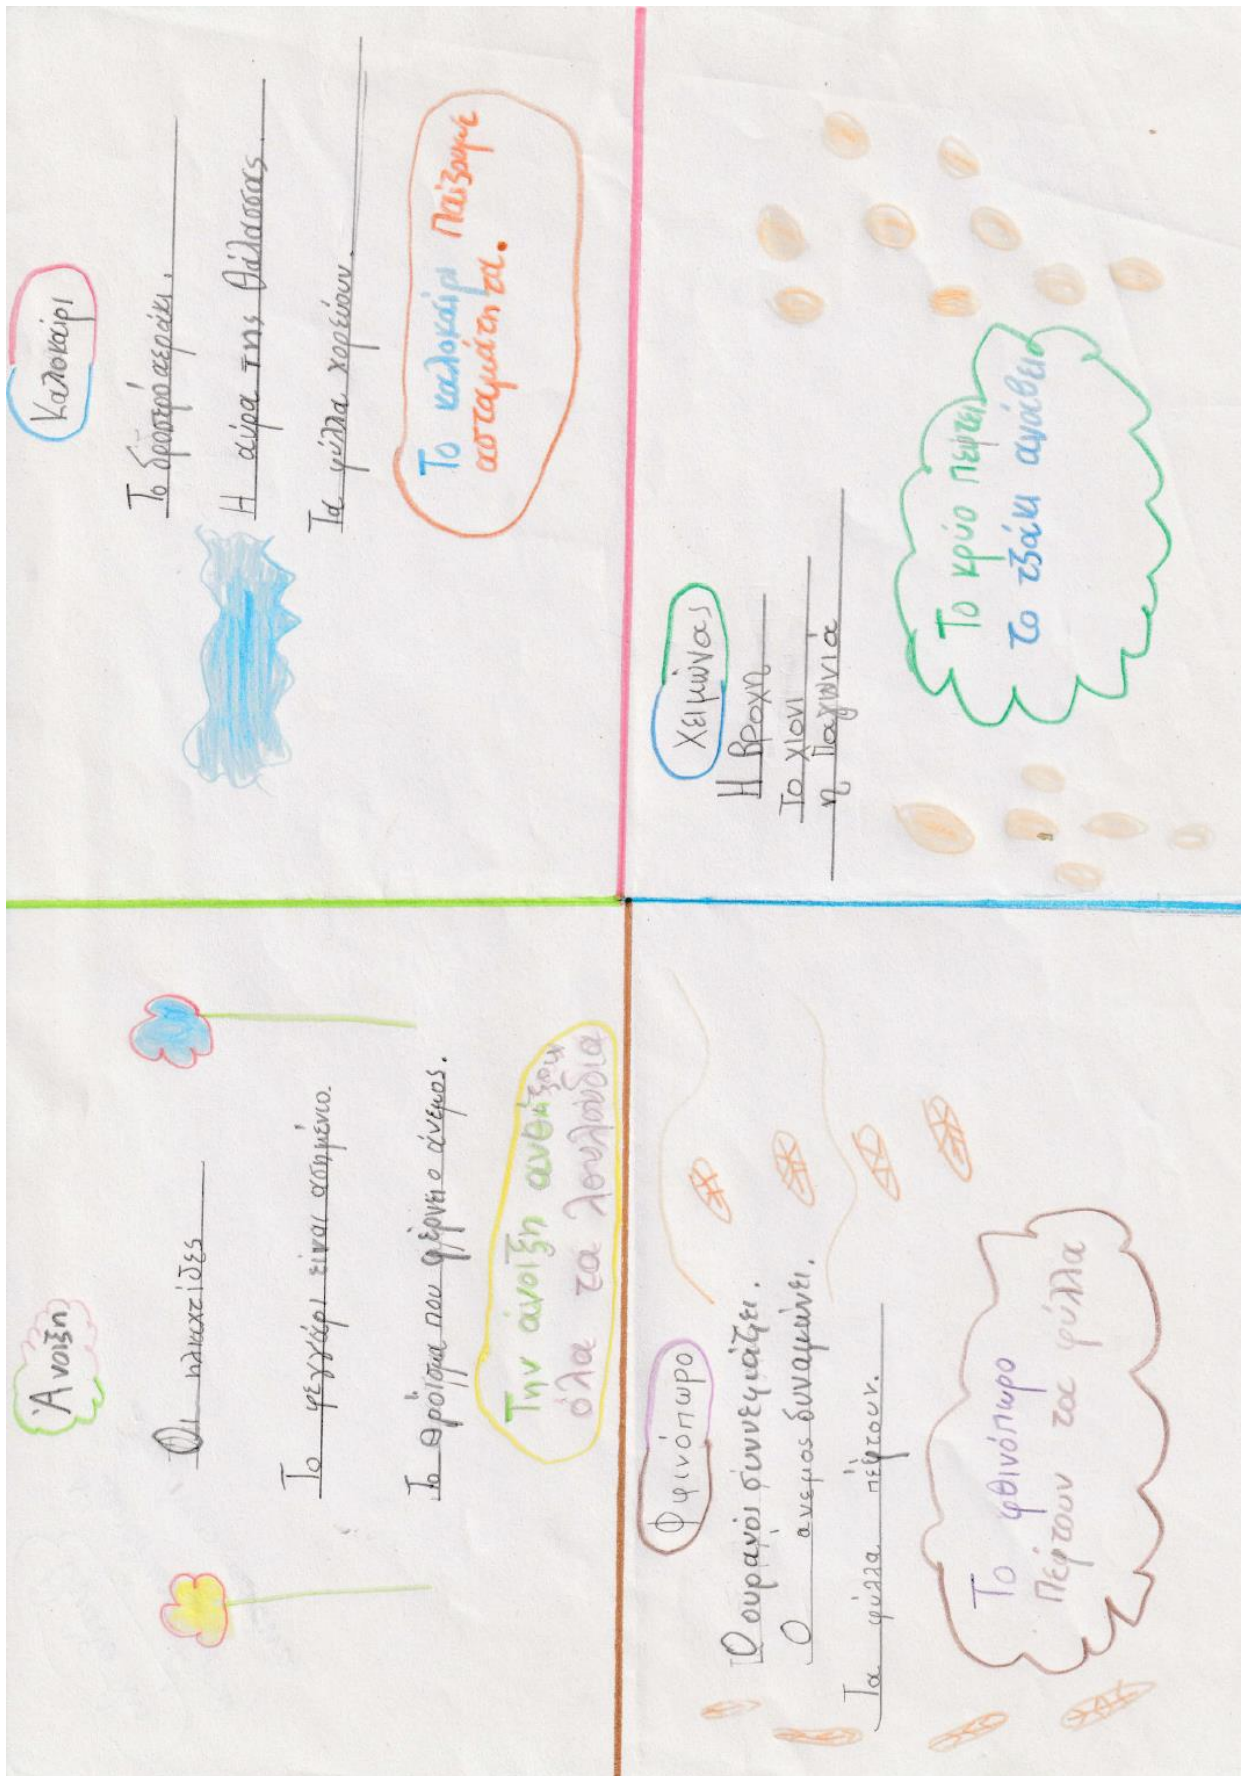 Άνοιξη
Οι ηλιαχτίδες
Το φεγγάρι είναι ασημένιο.
Το θρόϊσμα που φέρνει ο άνεμος.
Την άνοιξη ανθίζουν
όλα τα λουλούδια
Καλοκαίρι
Το δροσερό αεράκι.
Η αύρα της θάλασσας.
Τα φύλλα χορεύουν.
Το καλοκαίρι παίζουμε
ασταμάτητα.
Φφινόπωρο
Ο ουρανός συννεφιάζει.
Ο ανεμος δυναμώνει.
Τα φύλλα πέφτουν.
Το φθινόπωρο
πέφτουν τα φύλλα
Χειμώνας
Η Βροχη
Το χιονι
η παγωνιά
Το κρύο πέφτει
το τζάκι ανάβει